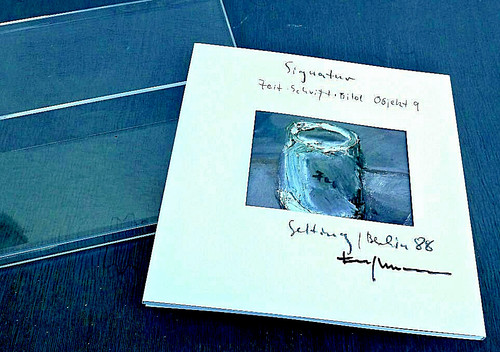 Signatur
Zeit·Schrift·Bild Objekt 9
Gelting / Berlin 88